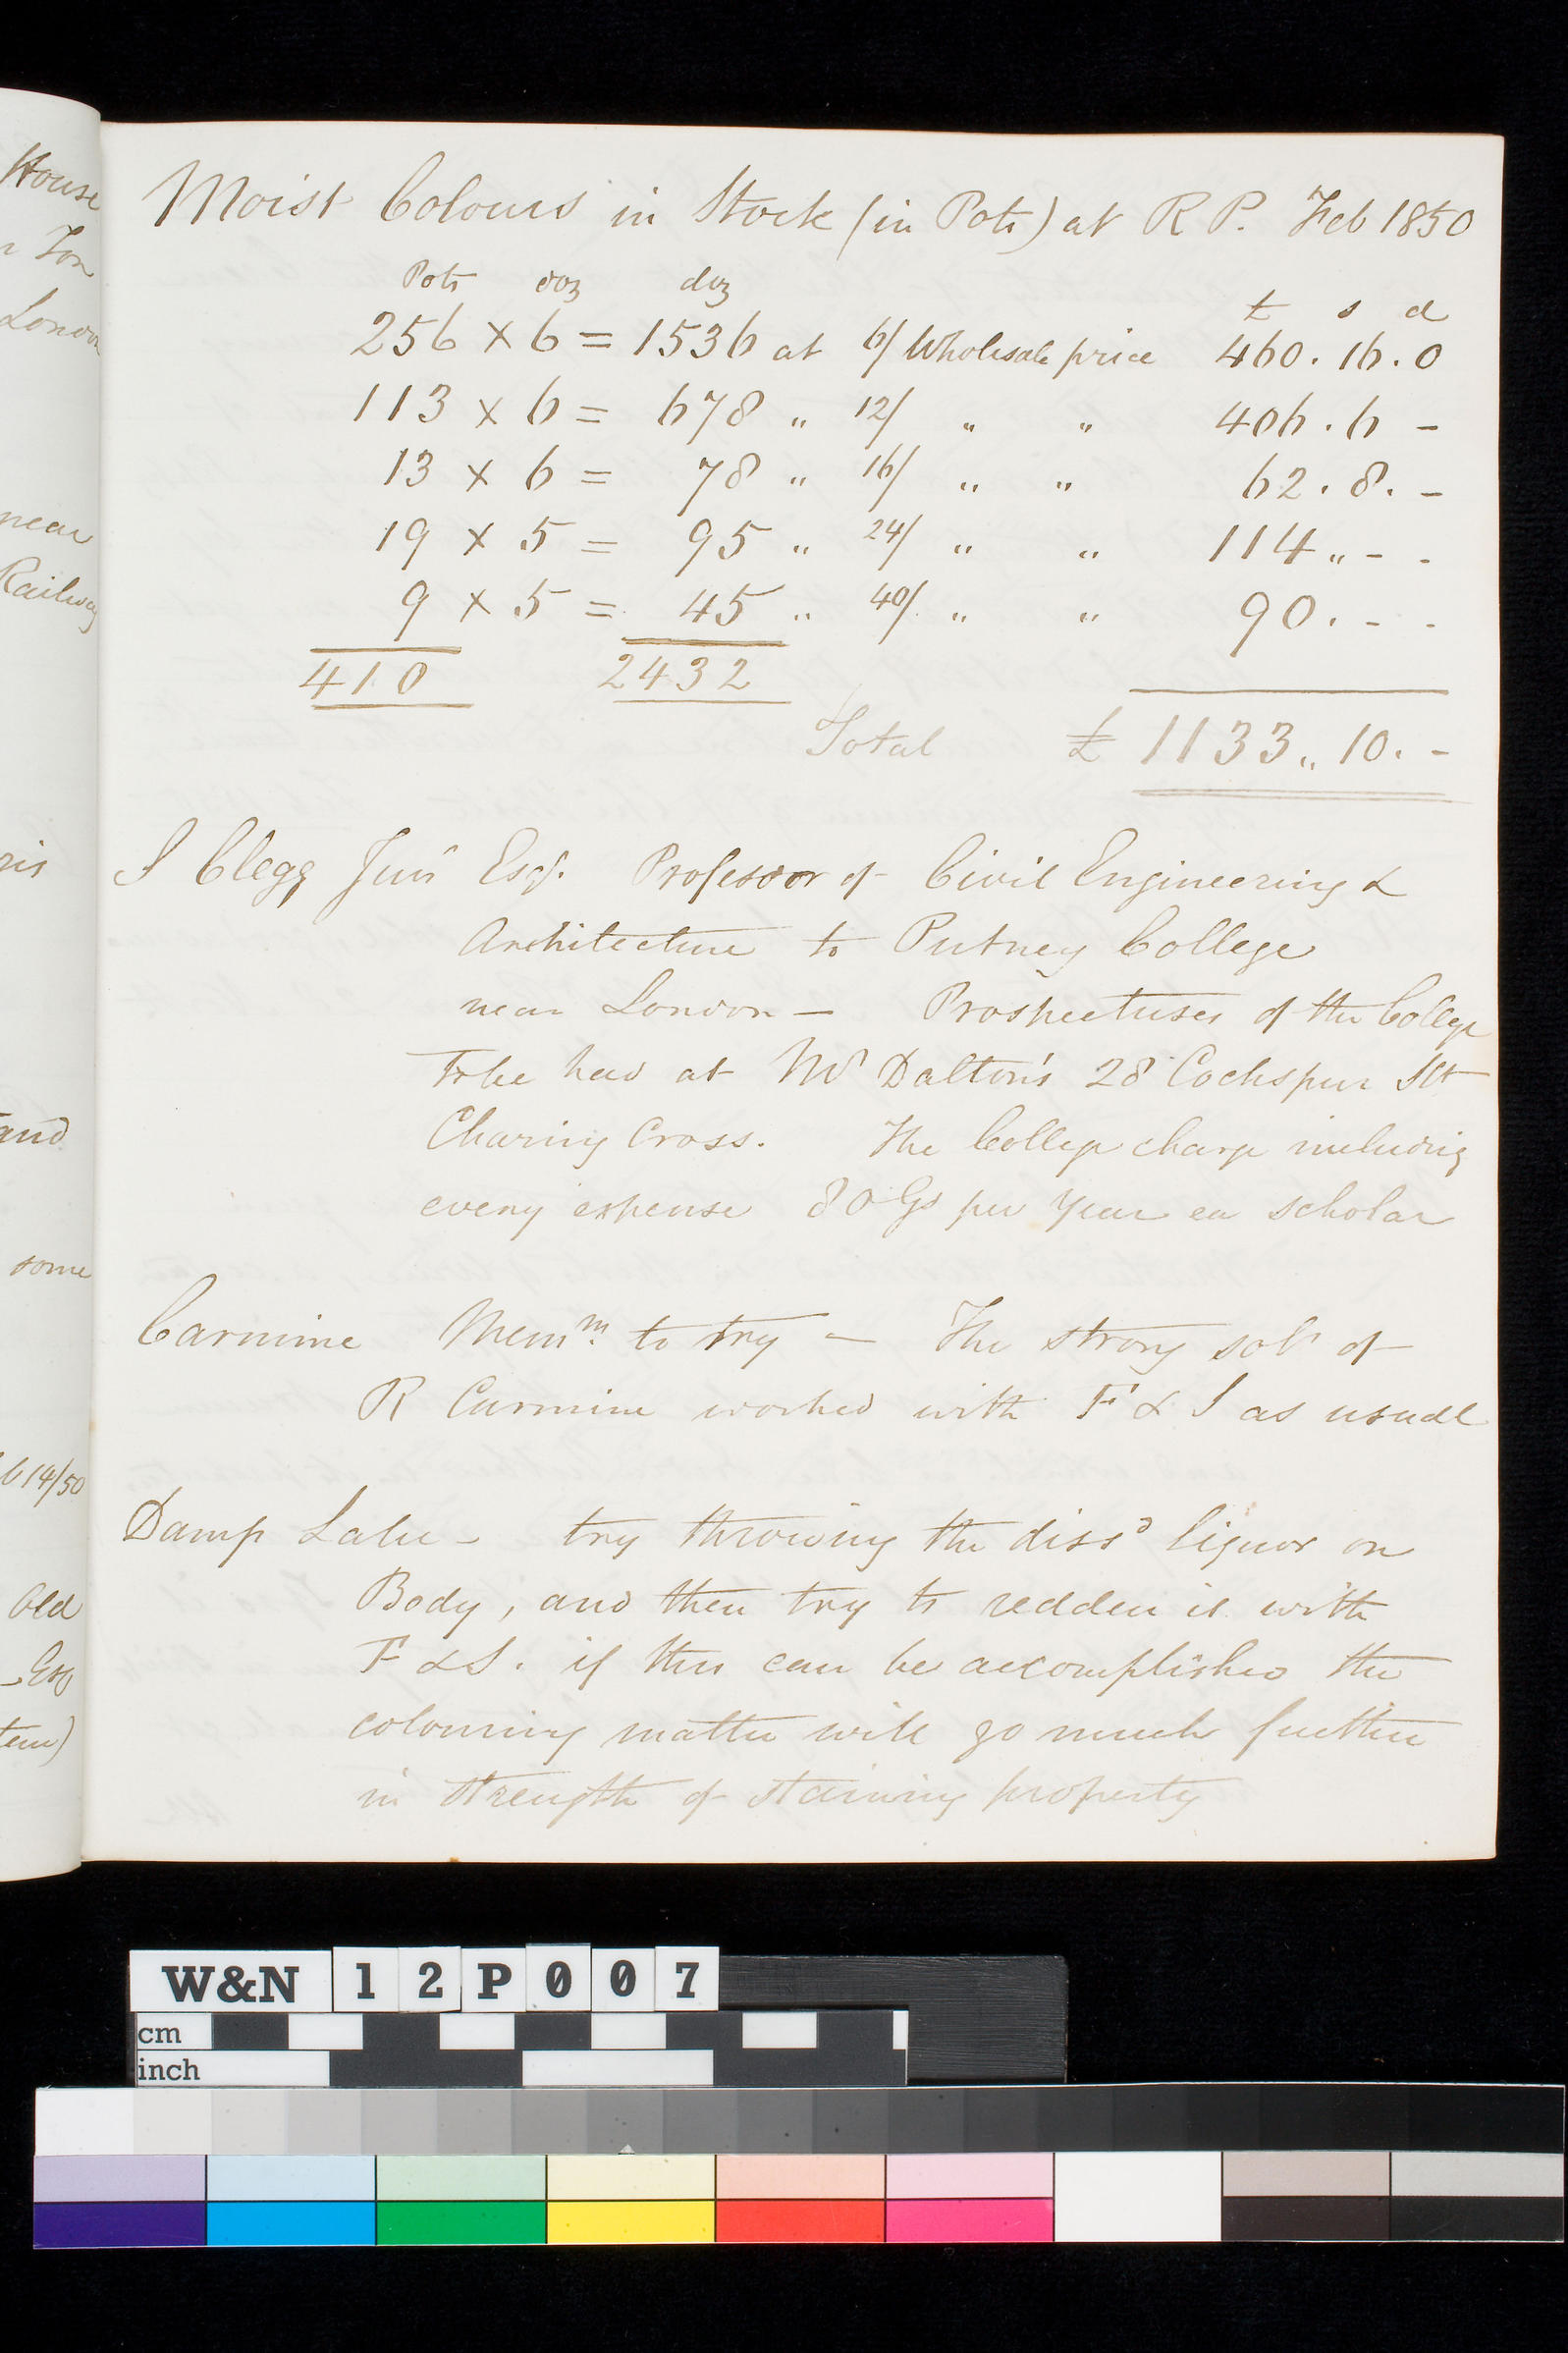 House
Ton
London
near
Railway
ris
and
some
b 14/50
Old
Esq
tem)
Moist Colours in Stock (in Pots) at R P. Feb 1850
Pots doz doz
£ s d
256 × 6 = 1536 at 6/ Wholesale price 460 . 16 . 0
113 × 6 = 678 " 12/ " " 406 . 6 -
13 × 6 = 78 " 16/ " " 62 . 8 . -
19 × 5 = 95 " 24/ " " 114 " - -
9 × 5 = 45 " 40/ " " 90 . - -
410 2432
Total £ 1133 " 10 . -
S Clegg Junr Esqr. Professor of Civil Engineering &
Architecture to Putney College
near London — Prospectuses of the College
To be had at Mr Dalton's 28 Cockspur Stt
Charing Cross. The College charge including
every expense 80 Gs per Year ea scholar
Carmine Memm. to try — The strong soln of
R Carmine worked with F & S as usual
Damp Lake - try throwing the dissd liquor on
Body, and then try to redden it with
F & S. if this can be accomplished the
colouring matter will go much further
in strength of staining property
W&N 12P007
cm
inch